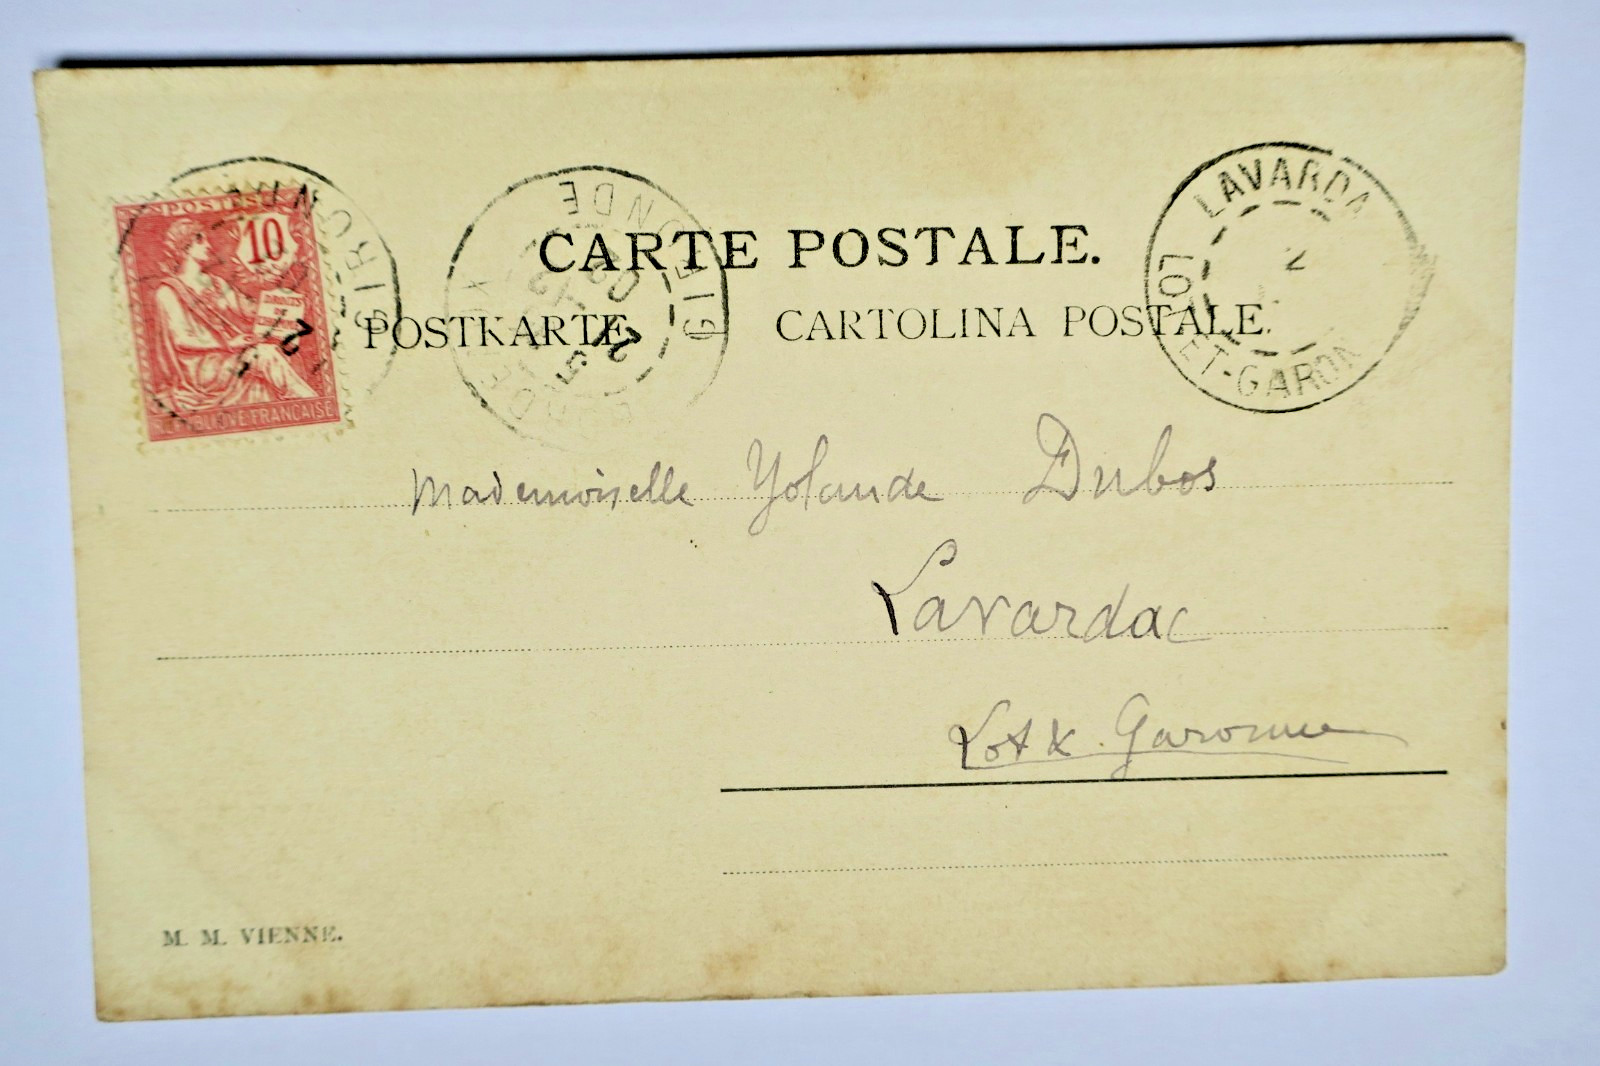 POSTES
10
DROITS
DE
REPUBLIQUE FRANCAISE
GIRONDE
2
GIRONDE
LAVARDA
LOT-ET-GARON
2
CARTE POSTALE.
POSTKARTE.
CARTOLINA POSTALE.
Mademoiselle Yolande Dubos
Lavardac
Lot & Garonne
M. M. VIENNE.